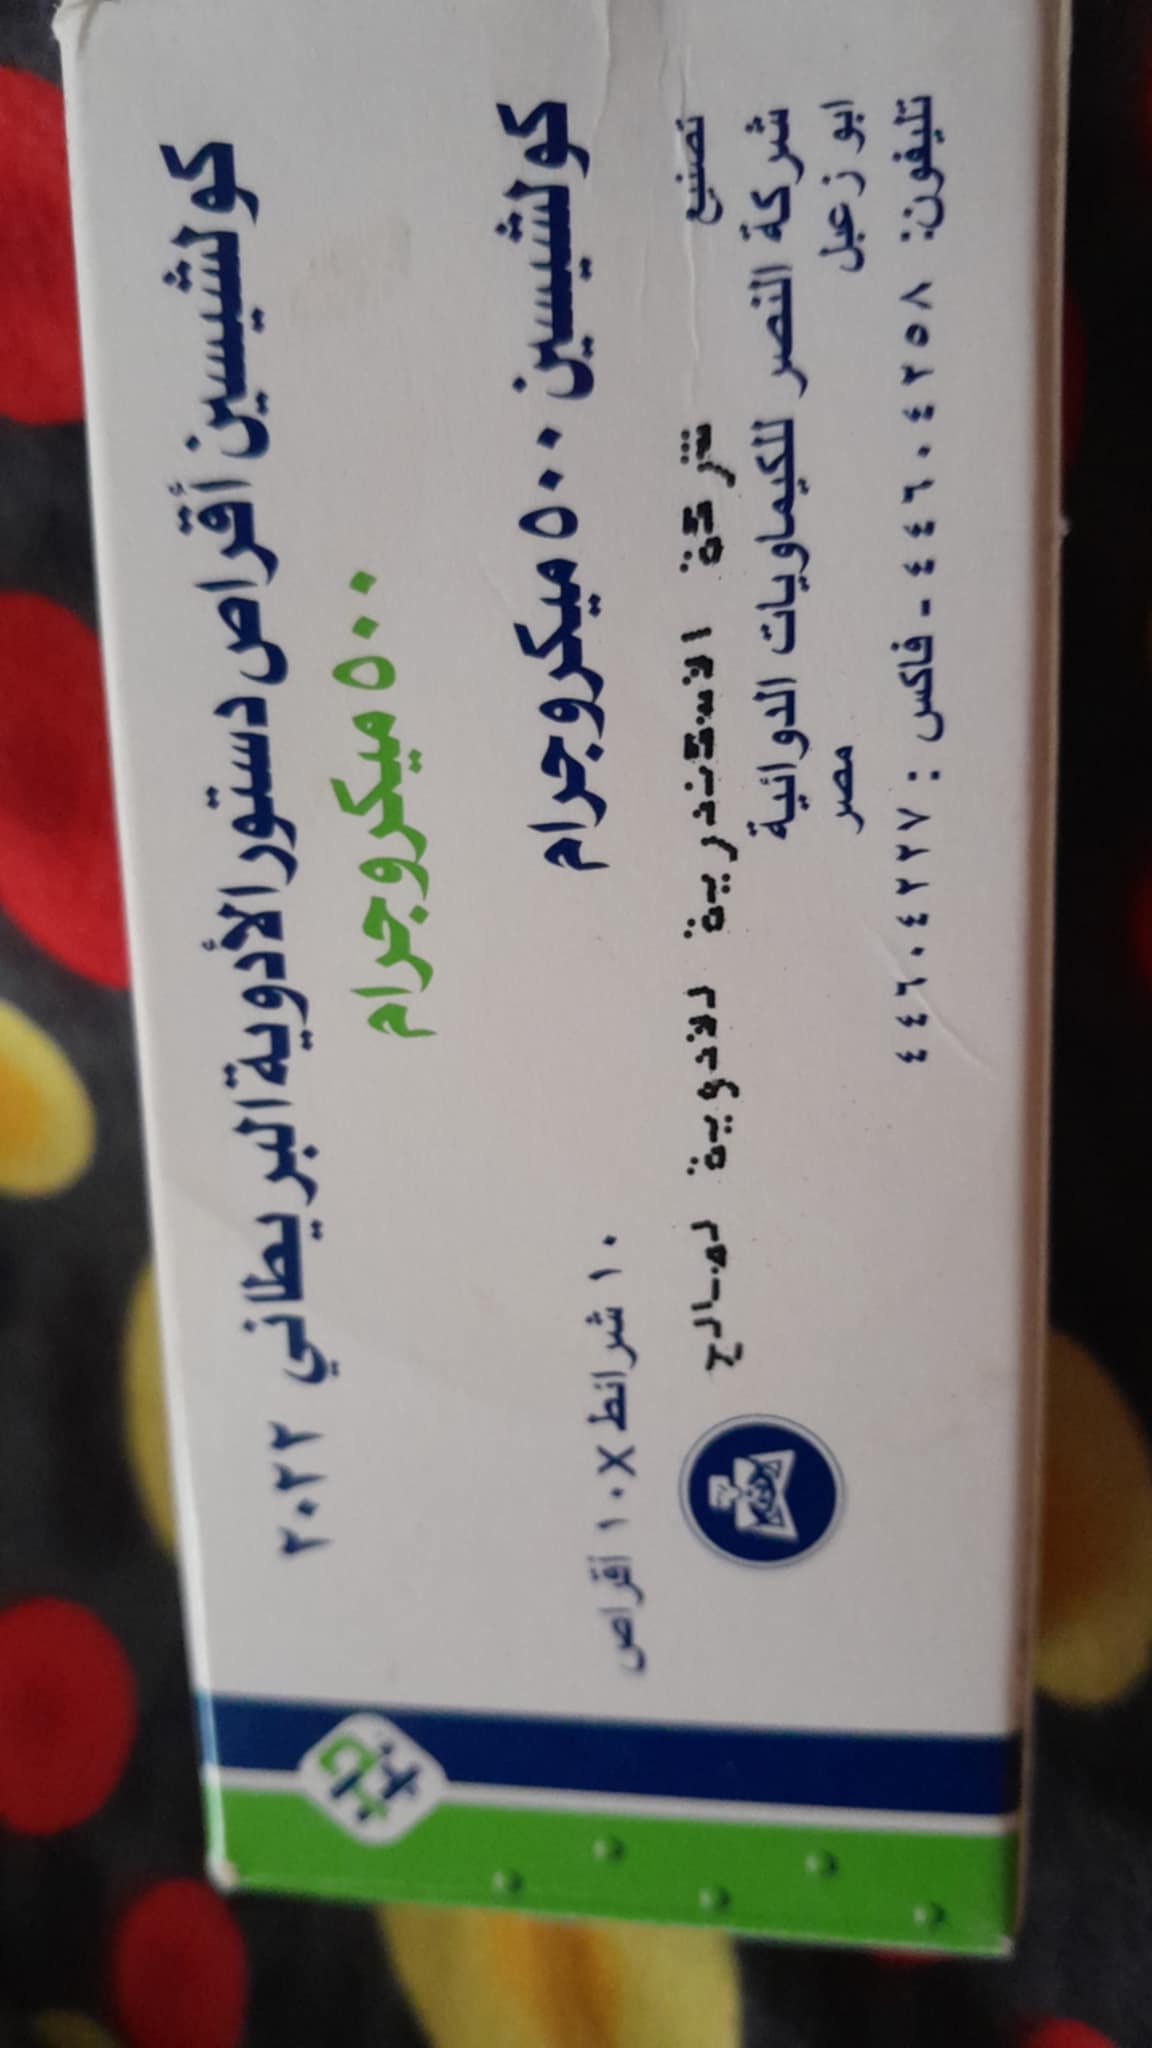 كولشيسين أقراص دستور الأدوية البريطاني ٢٠٢٢
٥٠٠ ميكروجرام
كولشيسين ٥٠٠ ميكروجرام
١٠ شرائط X ١٠ أقراص
تصنيع
شركة الاسكندرية للأدوية لصالح
شركة النصر للكيماويات الدوائية
ابو زعبل مصر
تليفون: ٤٤٦٠٤٢٥٨ - فاكس: ٤٤٦٠٤٢٢٧